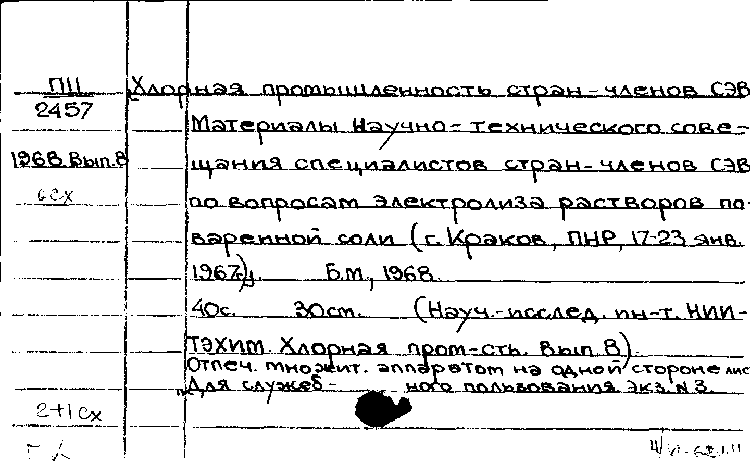 ПЦ Хлорная промышленность стран-членов СЭВ
2457
Материалы Научно-технического сове-
1968 Вып.8 щания специалистов стран-членов СЭВ
6сх по вопросам электролиза растворов по-
варенной соли (г. Краков, ПНР, 17-23 янв.
1967г.). Б.м., 1968.
40с. 30см. (Науч.-исслед. ин-т. НИИ-
ТЭХИМ. Хлорная пром-сть. Вып.8).
Отпеч. множит. аппаратом на одной стороне лис
Для служеб- ного пользования экз. N 3.
2+1сх